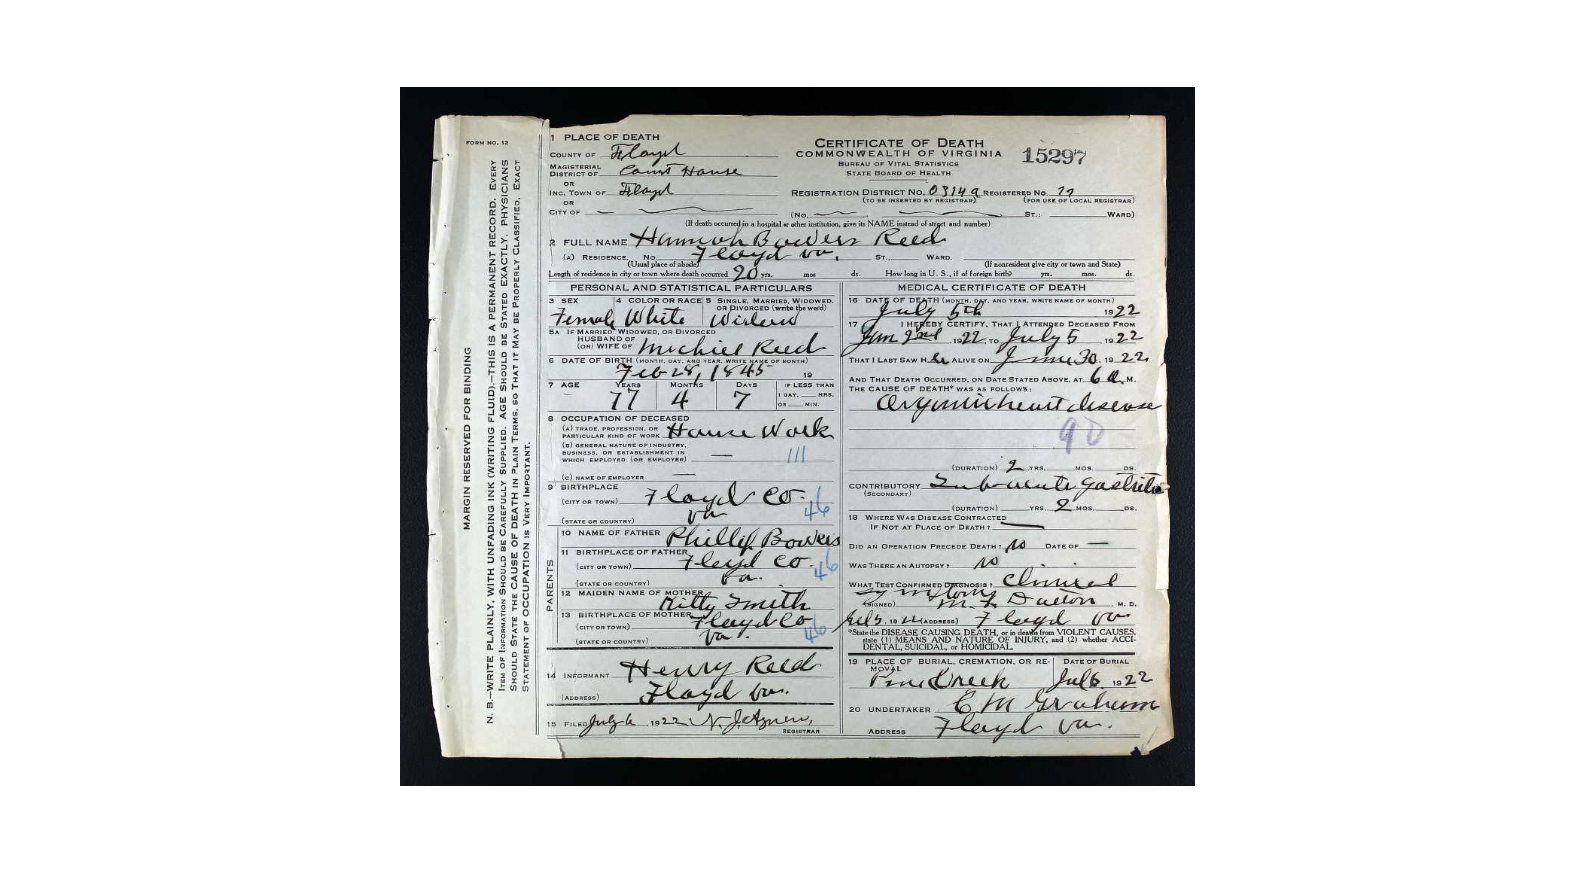 FORM NO. 12
MARGIN RESERVED FOR BINDING
N. B.—WRITE PLAINLY, WITH UNFADING INK (WRITING FLUID).—THIS IS A PERMANENT RECORD. EVERY
ITEM OF INFORMATION SHOULD BE CAREFULLY SUPPLIED. AGE SHOULD BE STATED EXACTLY. PHYSICIANS
SHOULD STATE THE CAUSE OF DEATH IN PLAIN TERMS, SO THAT IT MAY BE PROPERLY CLASSIFIED. EXACT
STATEMENT OF OCCUPATION IS VERY IMPORTANT.
1 PLACE OF DEATH
COUNTY OF Floyd
MAGISTERIAL DISTRICT OF Court House
OR
INC. TOWN OF Floyd
OR
CITY OF
CERTIFICATE OF DEATH
COMMONWEALTH OF VIRGINIA
BUREAU OF VITAL STATISTICS
STATE BOARD OF HEALTH
15297
REGISTRATION DISTRICT NO. 0314a REGISTERED NO.
(TO BE INSERTED BY REGISTRAR) (FOR USE OF LOCAL REGISTRAR)
(NO. ST.; WARD)
(If death occurred in a hospital or other institution, give its NAME instead of street and number)
2 FULL NAME Hannah Bowers Reed
(A) RESIDENCE. No. Floyd Va. ST. WARD.
(Usual place of abode) (If nonresident give city or town and State)
Length of residence in city or town where death occurred 20 yrs. mos ds. How long in U. S., if of foreign birth? yrs. mos. ds
PERSONAL AND STATISTICAL PARTICULARS
3 SEX
Female
4 COLOR OR RACE
White
5 SINGLE, MARRIED, WIDOWED, OR DIVORCED (write the word)
5A IF MARRIED, WIDOWED, OR DIVORCED
HUSBAND OF
(OR) WIFE OF Michiel Reed
6 DATE OF BIRTH (MONTH, DAY, AND YEAR, WRITE NAME OF MONTH)
Feb 28, 1845 19
7 AGE YEARS MONTHS DAYS IF LESS THAN
1 DAY, HRS.
OR MIN.
77 4 7
8 OCCUPATION OF DECEASED
(A) TRADE, PROFESSION, OR
PARTICULAR KIND OF WORK House Work
(B) GENERAL NATURE OF INDUSTRY,
BUSINESS, OR ESTABLISHMENT IN
WHICH EMPLOYED (OR EMPLOYER) —
111
(C) NAME OF EMPLOYER —
9 BIRTHPLACE
(CITY OR TOWN) Floyd Co.
(STATE OR COUNTRY) Va
46
PARENTS
10 NAME OF FATHER Phillip Bowers
11 BIRTHPLACE OF FATHER
(CITY OR TOWN) Floyd Co.
(STATE OR COUNTRY) Va.
46
12 MAIDEN NAME OF MOTHER Kitty Smith
13 BIRTHPLACE OF MOTHER
(CITY OR TOWN) Floyd Co
(STATE OR COUNTRY) Va.
46
14 INFORMANT Henry Reed
(ADDRESS) Floyd Va.
15 FILED July 6 1922 N. J. Agnew,
REGISTRAR
MEDICAL CERTIFICATE OF DEATH
16 DATE OF DEATH (MONTH, DAY, AND YEAR, WRITE NAME OF MONTH)
July 5th 1922
17 I HEREBY CERTIFY, THAT I ATTENDED DECEASED FROM
2nd 1922, TO July 5, 1922
THAT I LAST SAW H ALIVE ON June 30, 1922,
AND THAT DEATH OCCURRED, ON DATE STATED ABOVE, AT 6 a. M.
THE CAUSE OF DEATH* WAS AS FOLLOWS:
heart disease
90
(DURATION) 2 YRS. MOS. DS.
CONTRIBUTORY Sub-acute gastritis
(SECONDARY)
(DURATION) YRS. 2 MOS. DS.
18 WHERE WAS DISEASE CONTRACTED
IF NOT AT PLACE OF DEATH?
DID AN OPERATION PRECEDE DEATH? no DATE OF —
WAS THERE AN AUTOPSY? no
WHAT TEST CONFIRMED DIAGNOSIS? Clinical
symptoms
(SIGNED) M. D.
July 5, 1922 (ADDRESS) Floyd Va
*State the DISEASE CAUSING DEATH, or in deaths from VIOLENT CAUSES,
state (1) MEANS AND NATURE OF INJURY, and (2) whether ACCI-
DENTAL, SUICIDAL, or HOMICIDAL.
19 PLACE OF BURIAL, CREMATION, OR RE-
MOVAL
DATE OF BURIAL
Pine Creek July 6, 1922
20 UNDERTAKER C M Graham
ADDRESS Floyd Va.